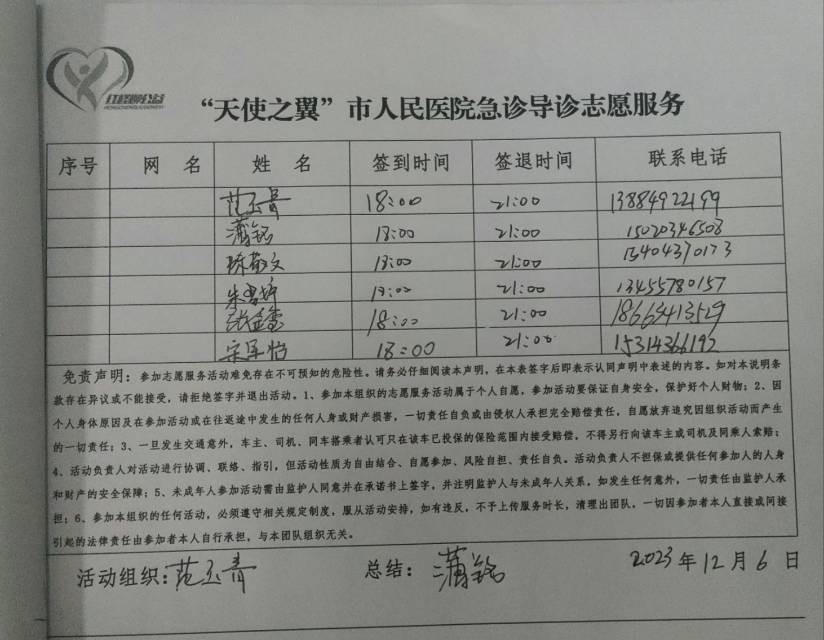 红橙啊公益
“天使之翼”市人民医院急诊导诊志愿服务
序号 网 名 姓 名 签到时间 签退时间 联系电话
范玉青 18:00 21:00 13884922199
蒲铭 18:00 21:00 15020346508
陈敬文 18:00 21:00 13404370173
18:00 21:00 13455780157
18:00 21:00 18664413529
宋军怡 18:00 21:00 15314366192
免责声明：参加志愿服务活动难免存在不可预知的危险性。请务必仔细阅读本声明，在本表签字后即表示认同声明中表述的内容。如对本说明条
款存在异议或不能接受，请拒绝签字并退出活动。1、参加本组织的志愿服务活动属于个人自愿，参加活动要保证自身安全，保护好个人财物；2、因
个人身体原因及在参加活动或在往返途中发生的任何人身或财产损害，一切责任自负或由侵权人承担完全赔偿责任，自愿放弃追究因组织活动而产生
的一切责任；3、一旦发生交通意外，车主、司机、同车搭乘者认可只在该车已投保的保险范围内接受赔偿，不得另行向该车主或司机及同乘人索赔；
4、活动负责人对活动进行协调、联络、指引，但活动性质为自由结合、自愿参加、风险自担、责任自负。活动负责人不担保或提供任何参加人的人身
和财产的安全保障；5、未成年人参加活动需由监护人同意并在承诺书上签字，并注明监护人与未成年人关系，如发生任何意外，一切责任由监护人承
担；6、参加本组织的任何活动，必须遵守相关规定制度，服从活动安排，如有违反，不予上传服务时长，清理出团队，一切因参加者本人直接或间接
引起的法律责任由参加者本人自行承担，与本团队组织无关。
活动组织：范玉青 总结：蒲铭 2023年12月6日